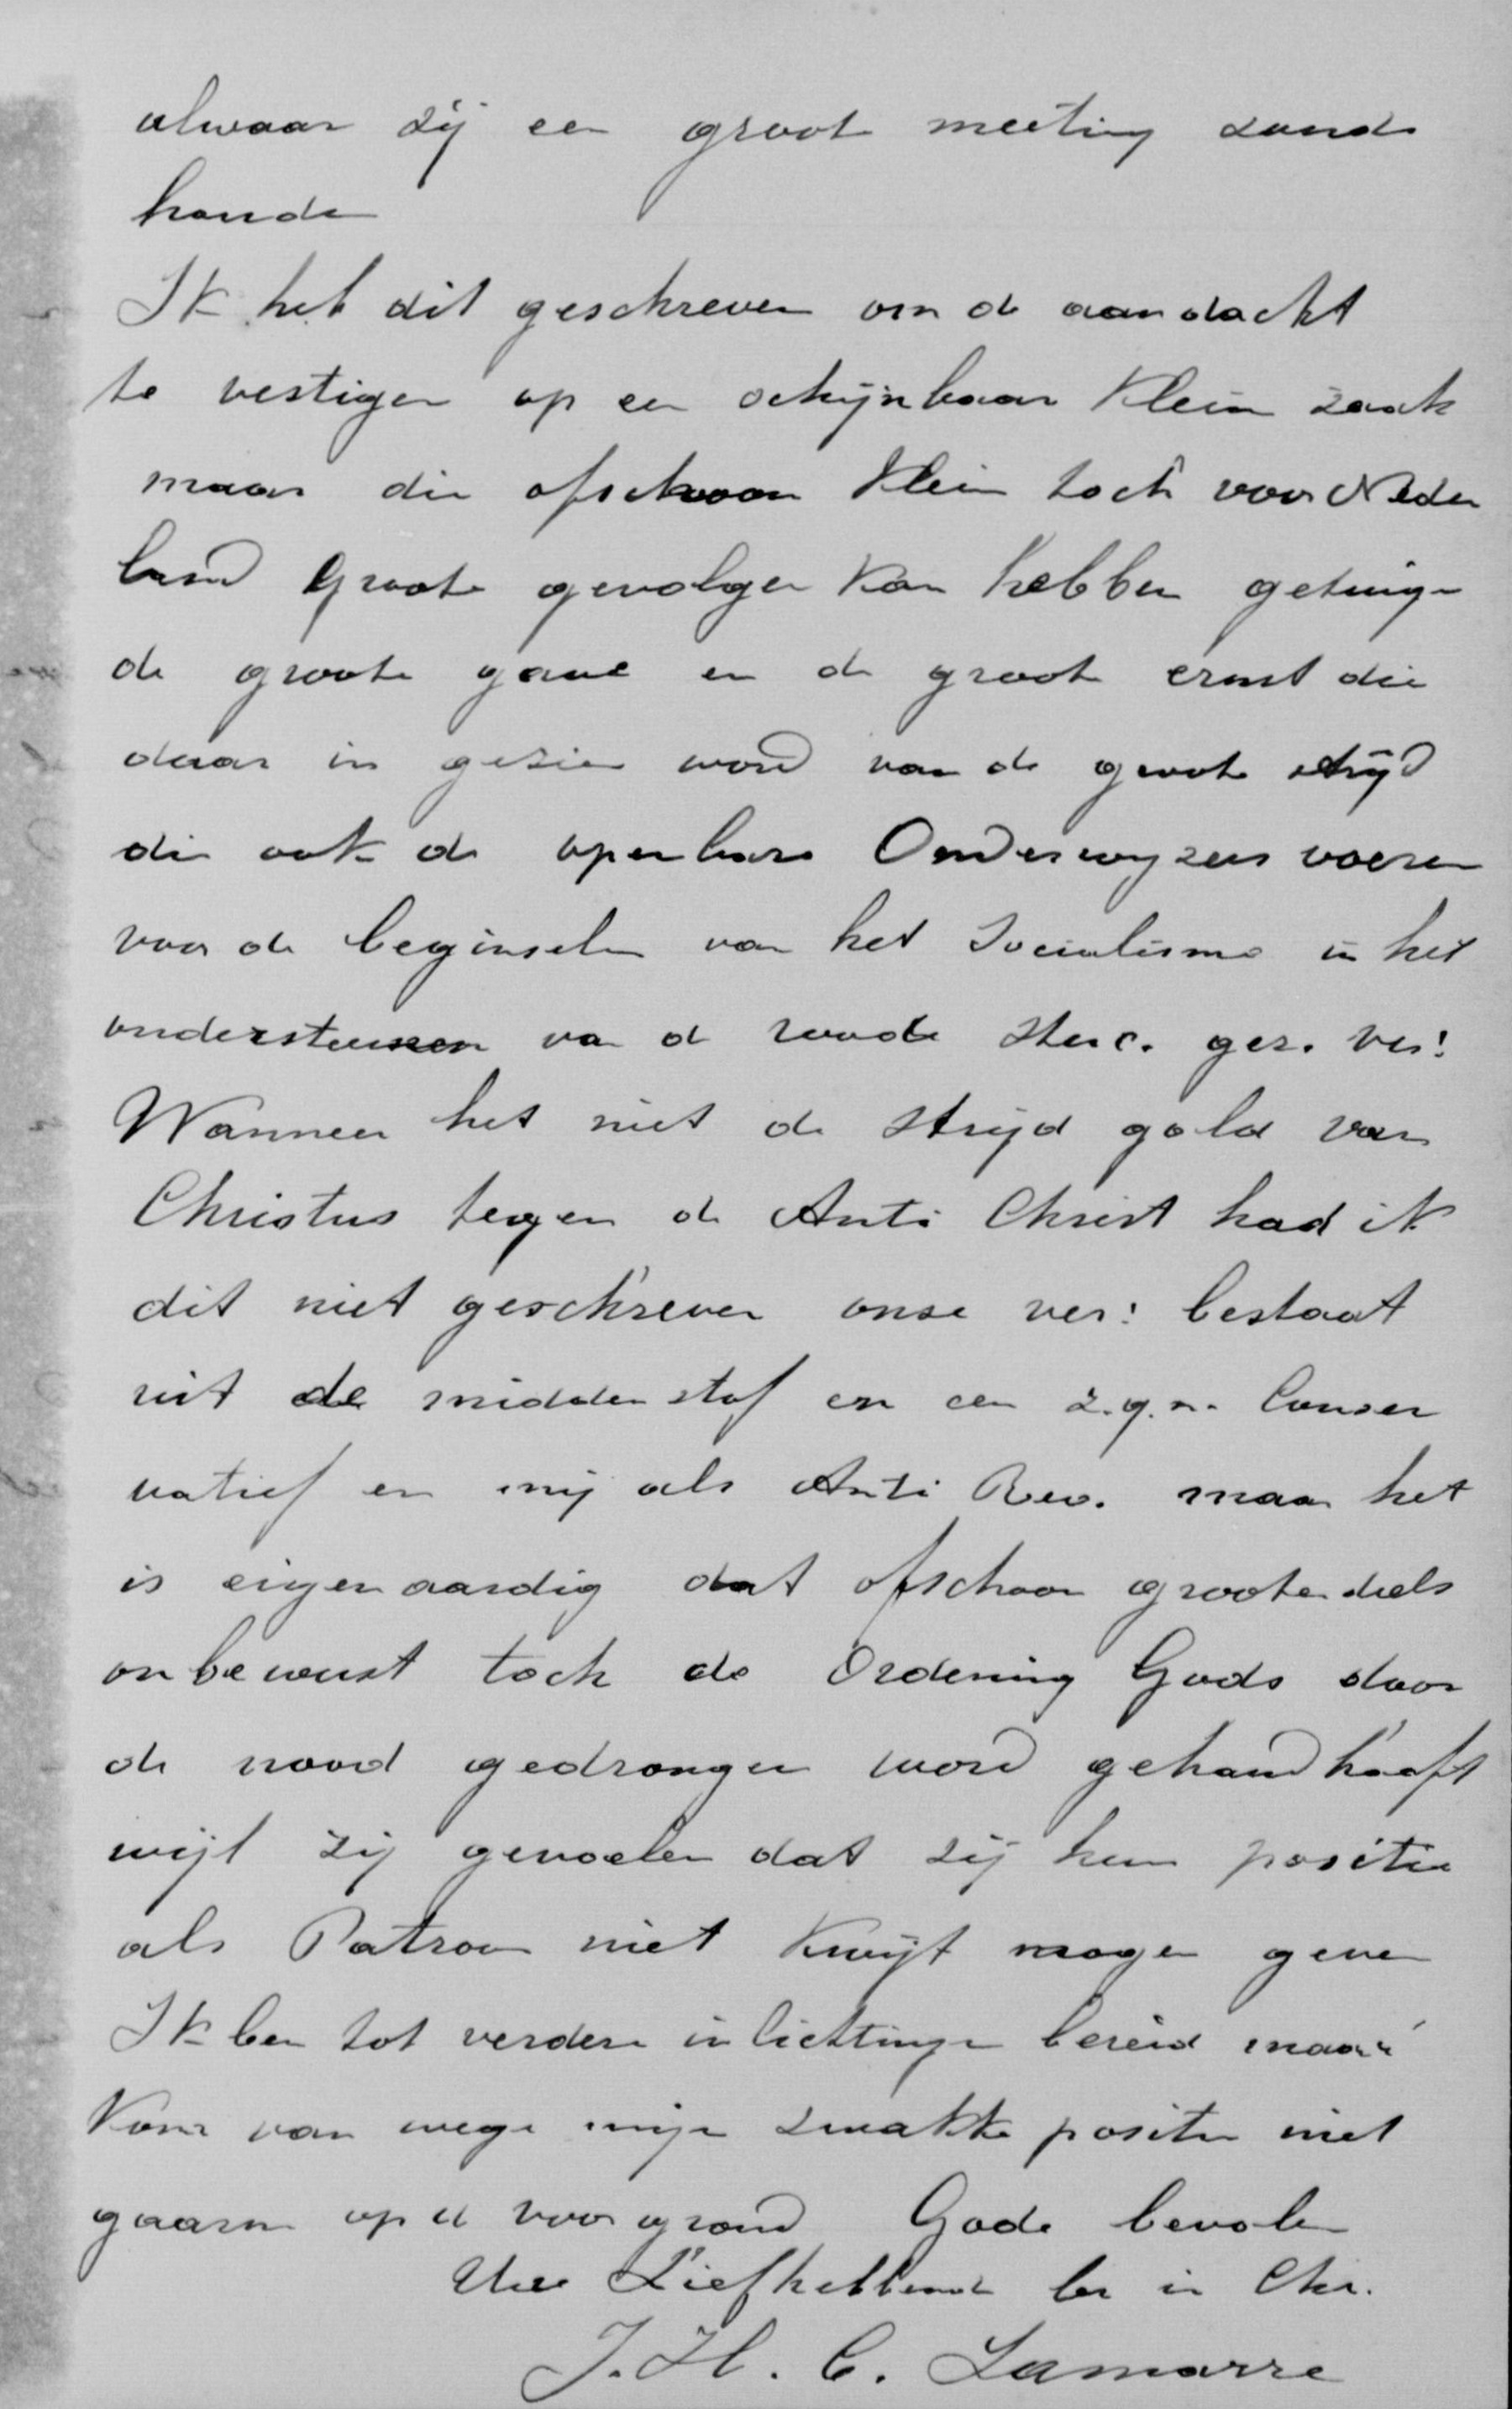 alwaar zij een groote meeting zoude
houden
Ik heb dit geschreven om de aandacht
te vestigen op een schijnbaar kleine zaak
maar die ofschoon klein toch voor Neder
land groote gevolgen kan hebben getuige
de groote gave en de groote ernst die
daar in gezien word van de groote strijd
die ook de openbare Onderwijzers voeren
voor de beginselen van het Socialisme in het
ondersteunen van de roode ster c. gez. ver:
Wanneer het niet de strijd gold van
Christus tegen de Anti Christ had ik
dit niet geschreven onze ver: bestaat
uit de middenstof en een z.g.n. Conser
vatief en mij als Anti Rev. maar het
is eigenaardig dat ofschoon grootendeels
onbewust toch de Ordening Gods door
de nood gedrongen word gehandhaaft
wijl zij gevoelen dat zij hun positie
als Patroon niet kwijt mogen geven
Ik ben tot verdere inlichtingen bereid maar
kom van wege mijn zwakke positie niet
gaarne op de voorgrond Gode bevolen
Uwe Liefhebbende br in Chr.
J. H. C. Lamarre